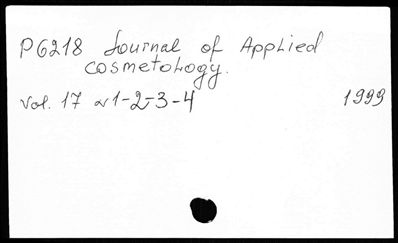 P6218 Journal of Applied
cosmetology.
Vol. 17 N1-2-3-4 1999